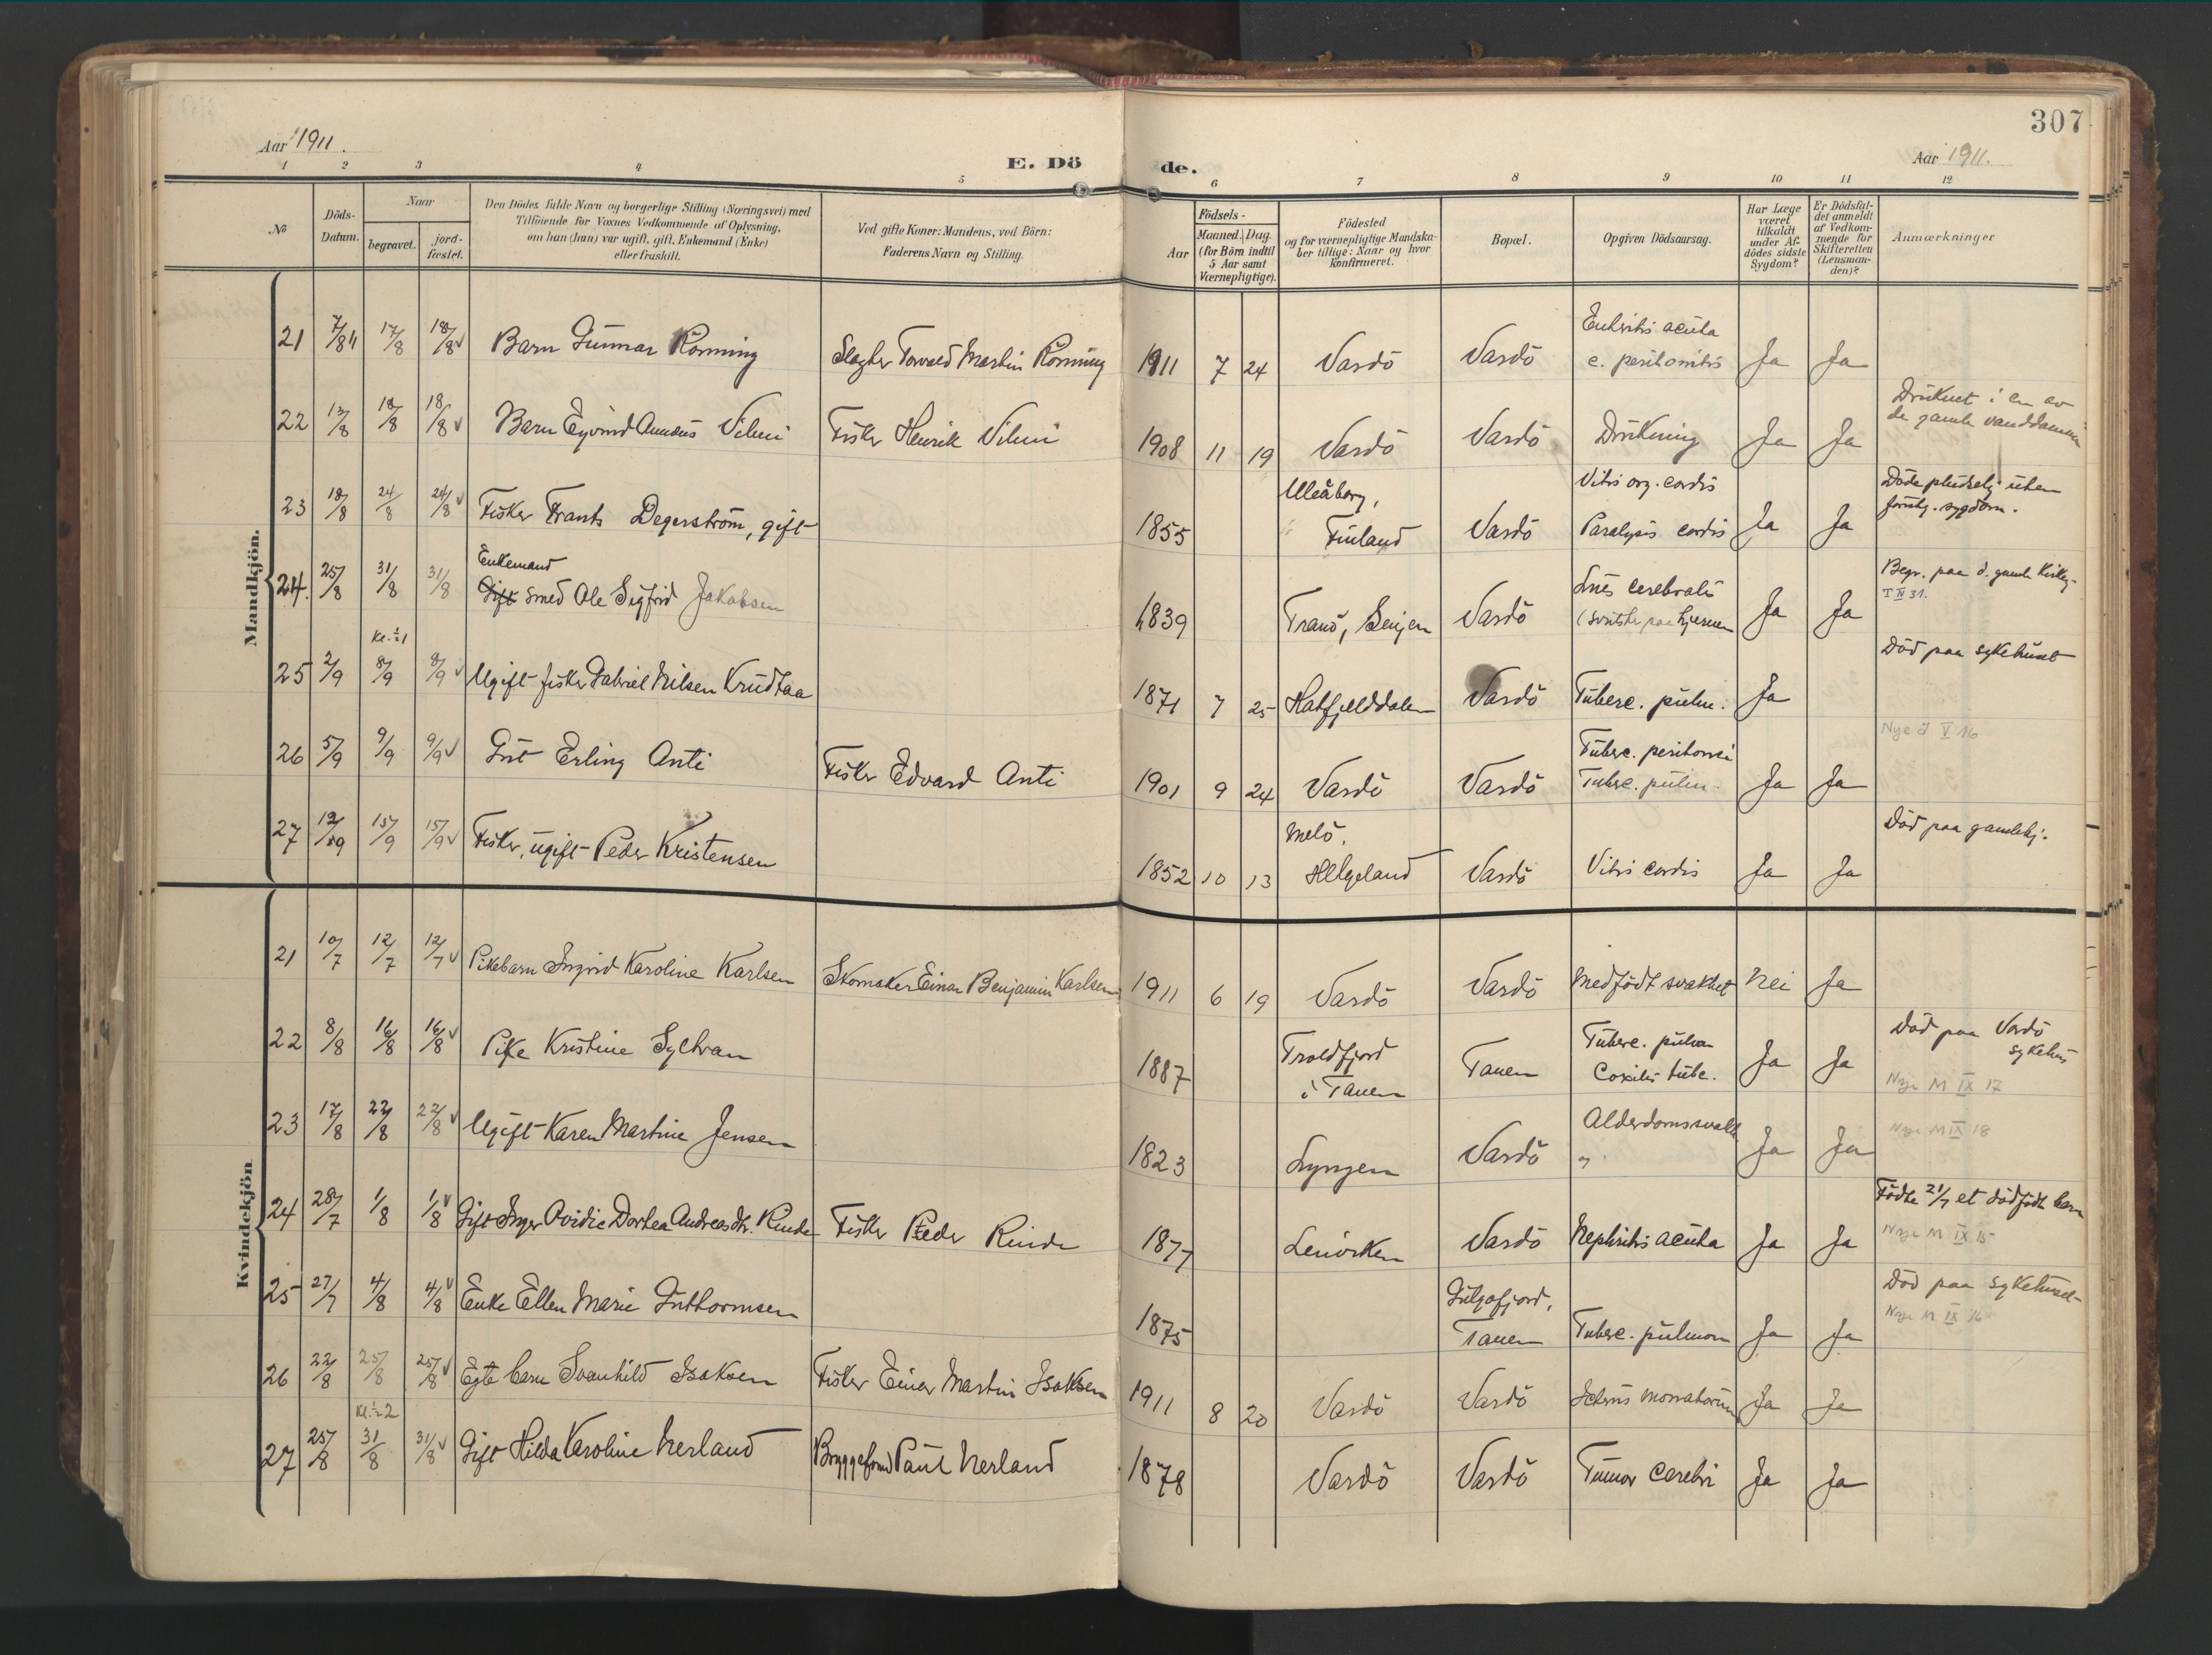 307
Aar 1911.
E. Dö
de.
Aar 1911.
1 2 3 4 5 6 7 8 9 10 11 12
No
Döds-
Datum.
Naar
begravet.
jord-
fæstet.
Den Dödes fulde Navn og borgerlige Stilling (Næringsvei) med
Tilföiende for Voxnes Vedkommende af Oplysning,
om han (hun) var ugift, gift, Enkemand (Enke)
eller fraskilt.
Ved gifte Koner: Mandens, ved Börn:
Faderens Navn og Stilling.
Aar
Födsels-
Maaned. Dag.
(for Börn indtil
5 Aar samt
Værnepligtige).
Födested
og for værnepligtige Mandska-
ber tillige: Naar og hvor
konfirmeret.
Bopæl.
Opgiven Dödsaarsag.
Har Læge
været
tilkaldt
under Af-
dödes sidste
Sygdom?
Er Dödsfal-
det anmeldt
af Vedkom-
mende for
Skifteretten
(Lensman-
den)?
Anmærkninger
Mandkjön.
21 7/8 11 17/8 18/8 v Barn Gunnar Rönning Slagter Torvald Martin Rönning 1911 7 24 Vardö Vardö Enteritis acuta
c. peritonitis Ja Ja
22 13/8 18/8 18/8 v Barn Eyvind Amandus Vilmi Fisker Henrik Vilmi 1908 11 19 Vardö Vardö Drukning Ja Ja
Druknet i en av
de gamle vanddamme
23 18/8 24/8 24/8 v Fisker Frants Degerström, gift 1855 Uleåborg,
Finland Vardö Vitis org. cordis
Paralysis cordis Ja Ja
Döde pludselig uten
forutg. sygdom.
24. 25/8 31/8 31/8 Enkemand
Gift smed Ole Sigfrid Jakobsen 1839 Tranö, Senjen Vardö Lues cerebralis
(svulster paa hjernen Ja Ja
Begr. paa d. gamle Kirkeg.
T II 31.
Kl. ½1
25 2/9 8/9 8/9 v Ugift fisker Gabriel Nilsen Krudtaa 1871 7 25 Hatfjelddalen Vardö Tuberc. pulm. Ja
Död paa sykehuset
Nye J V 16
26 5/9 9/9 9/9 v Gut Erling Anti Fisker Edvard Anti 1901 9 24 Vardö Vardö Tuberc. peritonei
Tuberc. pulm. Ja Ja
27 12/9 15/9 15/9 v Fisker, ugift Peder Kristensen 1852 10 13 Melö,
Helgeland Vardö Vitis cordis Ja Ja
Död paa gamlehj.
Kvindekjön
21 10/7 12/7 12/7 v Pikebarn Ingrid Karoline Karlsen Skomaker Einar Benjamin Karlsen 1911 6 19 Vardö Vardö Medfödt svakhet Nei Ja
22 8/8 16/8 16/8 v Pike Kristine Sylvan 1887 Troldfjord
i Tanen Tanen Tuberc. pulm
Coxitis tube. Ja Ja
Död paa Vardö
sykehus
Nye M IX 17
23 17/8 22/8 22/8 v Ugift Karen Martine Jensen 1823 Lyngen Vardö Alderdomssvakh Ja Ja
Nye M IX 18
24 28/7 1/8 1/8 v Gift Inger Ovidie Dorthea Andreasdtr. Rinde Fisker Peder Rinde 1877 Lenviken Vardö Nephritis acuta Ja Ja
Födte 21/7 et dödfödt barn
Nye M IX 15
25 27/7 4/8 4/8 v Enke Ellen Marie Guthormsen 1875 Gulgofjord,
Tanen Tuberc. pulmon Ja Ja
Död paa sykehuset
Nye M IX 16
26 22/8 25/8 25/8 v Egte barn Svanhild Isaksen Fisker Einar Martin Isaksen 1911 8 20 Vardö Vardö Icterus neonatorum Ja Ja
Kl. ½2
27 25/8 31/8 31/8 v Gift Hilda Karoline Nerland Bryggeform Paul Nerland 1878 Vardö Vardö Tumor cerebri Ja Ja